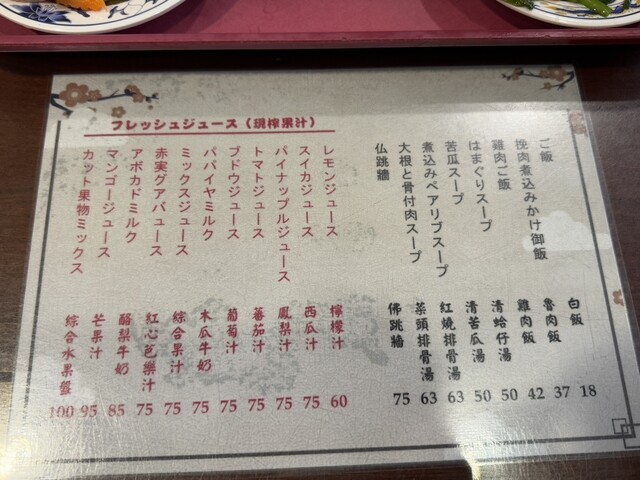 ご飯 白飯 18
挽肉煮込みかけ御飯 魯肉飯 37
雞肉ご飯 雞肉飯 42
はまぐりスープ 清蛤仔湯 50
苦瓜スープ 清苦瓜湯 50
煮込みペアリブスープ 紅燒排骨湯 63
大根と骨付肉スープ 菜頭排骨湯 63
仏跳牆 佛跳牆 75
フレッシュジュース（現榨果汁）
レモンジュース 檸檬汁 60
スイカジュース 西瓜汁 75
パイナップルジュース 鳳梨汁 75
トマトジュース 蕃茄汁 75
ブドウジュース 葡萄汁 75
パパイヤミルク 木瓜牛奶 75
ミックスジュース 綜合果汁 75
赤実グアバュース 紅心芭樂汁 75
アボカドミルク 酪梨牛奶 85
マンゴージュース 芒果汁 95
カット果物ミックス 綜合水果盤 100